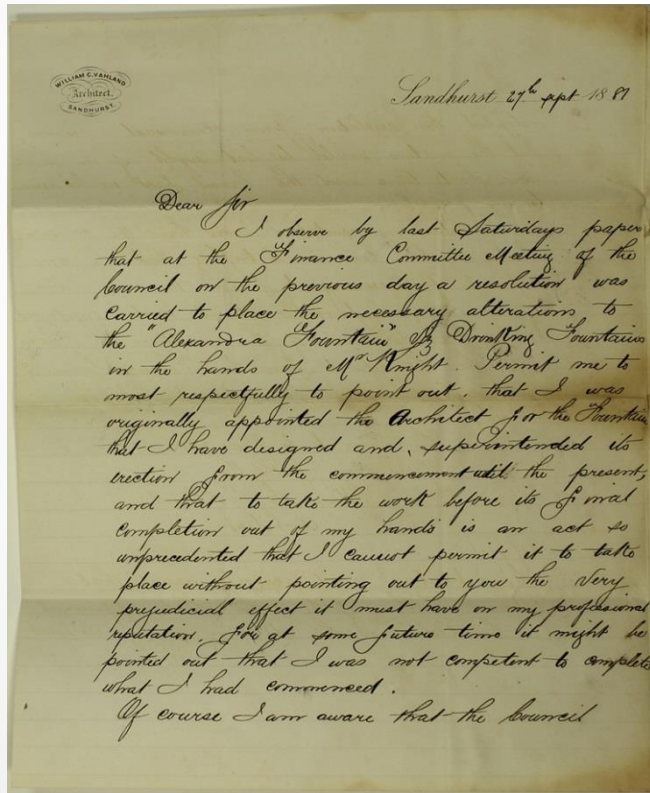 WILLIAM C. VAHLAND
Architect,
SANDHURST.
Sandhurst 27th Sept 1881
Dear Sir
I observe by last Saturdays paper
that at the Finance Committee Meeting of the
Council on the previous day a resolution was
carried to place the necessary alterations to
the "Alexandra Fountain" viz Drinking Fountains
in the hands of Mr Knight. Permit me to
most respectfully to point out, that I was
originally appointed the Architect for the Fountain
that I have designed and, superintended its
erection from the commencement until the present,
and that to take the work before its final
completion out of my hands is an act so
unprecedented that I cannot permit it to take
place without pointing out to you the very
prejudicial effect it must have on my professional
reputation. For at some future time it might be
pointed out that I was not competent to complete
what I had commenced.
Of course I am aware that the Council